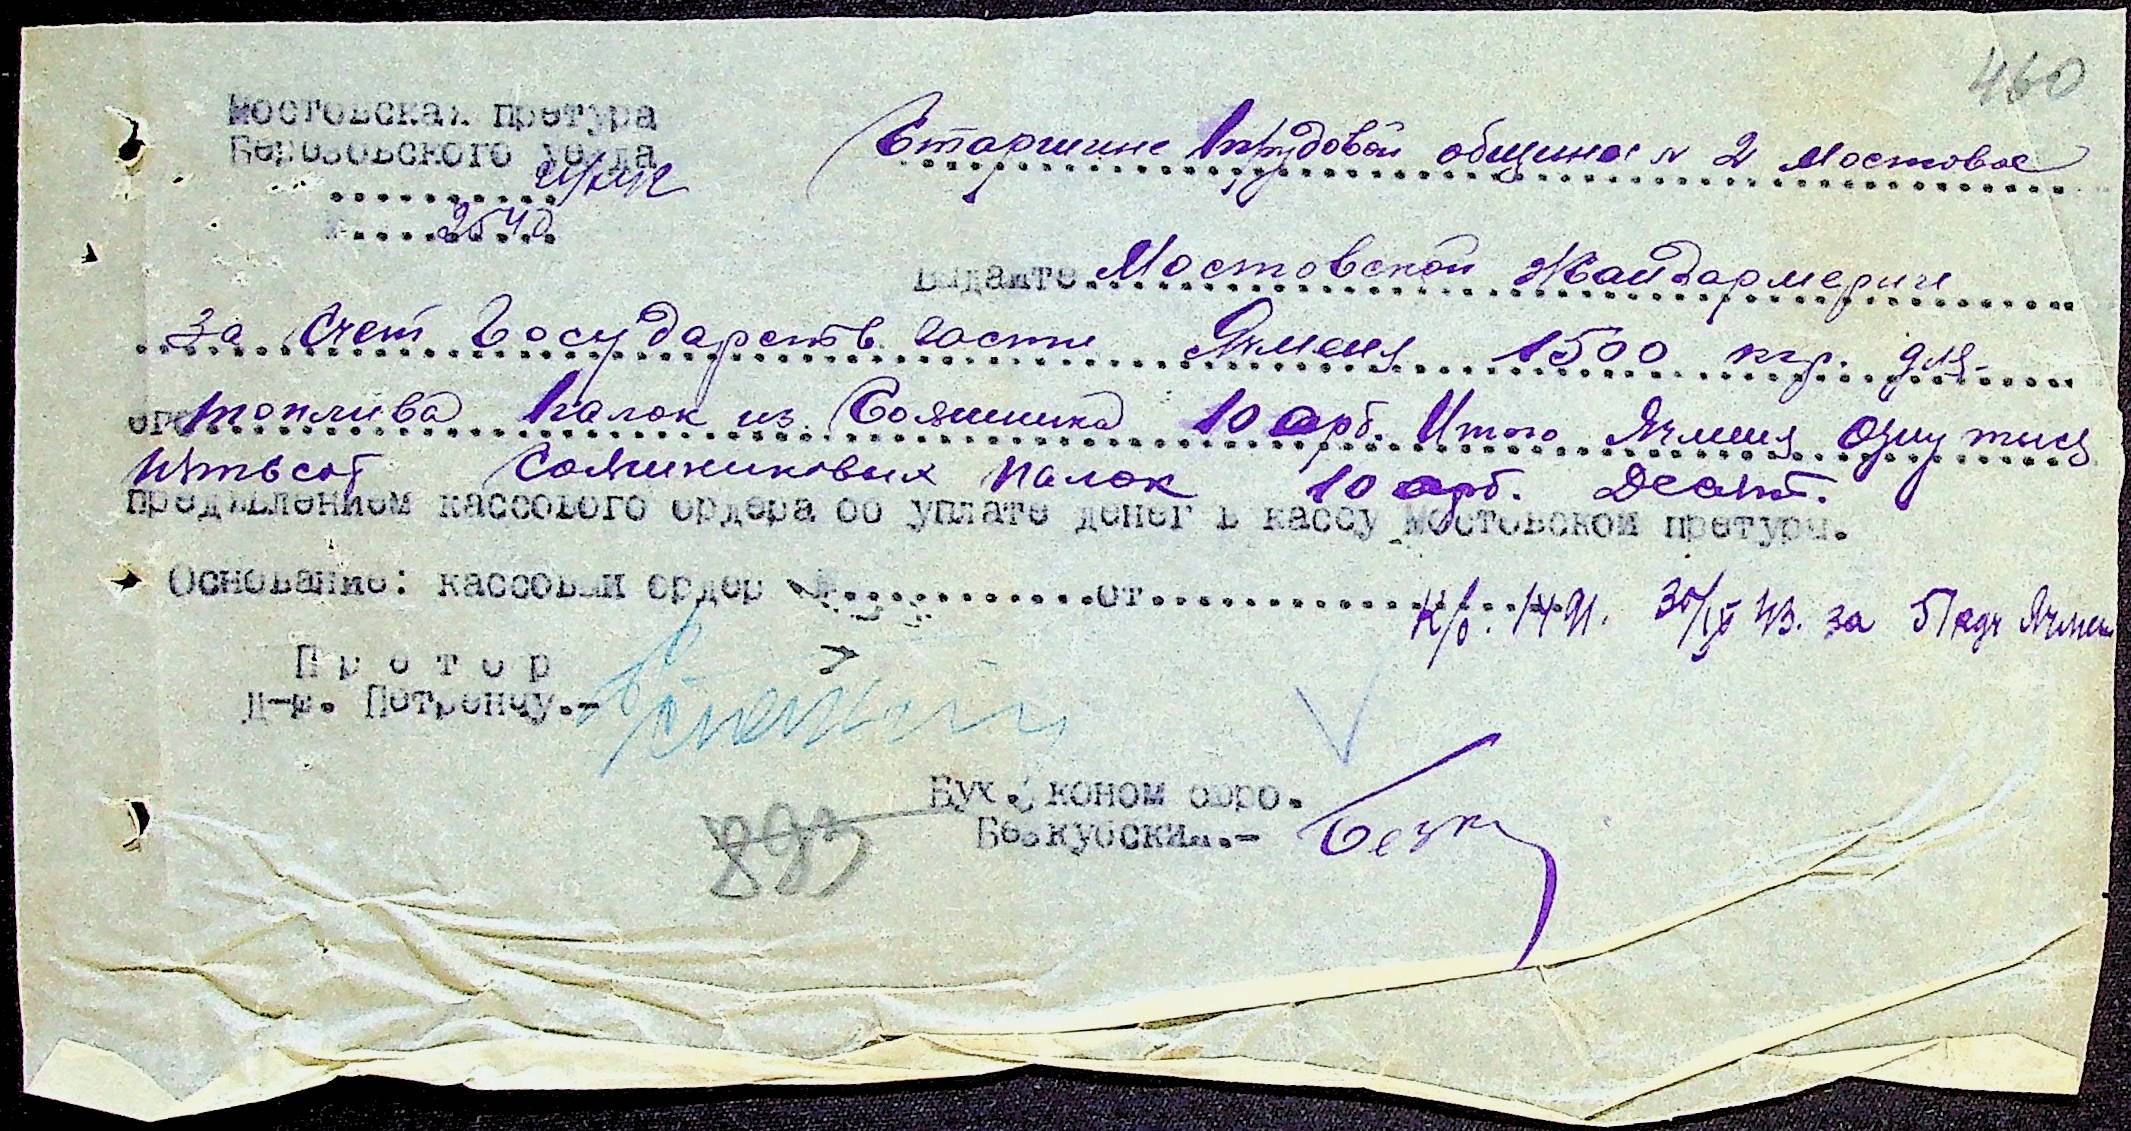 460
Мостовская претура
Березовского уезда
2540
Старшине Трудовой общины № 2 Мостовое
Выдайте Мостовской Жандармерии
За счет Государств. части Ячменя 1500 кгр. для
его топлива палок из Сояшника 10 арб. Итого Ячменя одну тися
пятьсот Сояшниковых палок 10 арб. десят.
предъявлением кассового ордера об уплате денег в кассу Мостовской претуры.
Основание: кассовый ордер №............от............
К/о. 1491. 30/IX 43. за Ячмен
Претор
д-р. Петренчу.-
Бух. эконом бюро.
Безкубский.-
893